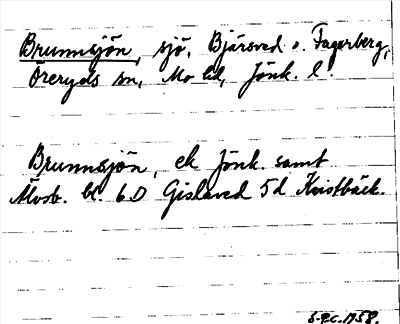 Brunnsjön, sjö, Bjärsved o. Fagerberg,
Öreryds sn, Mo hd, Jönk. l.
Brunnsjön, ek Jönk. samt
Mosb. bl. 6D Gislaved 5d Kvistbäck.
S.P.C. 1958.